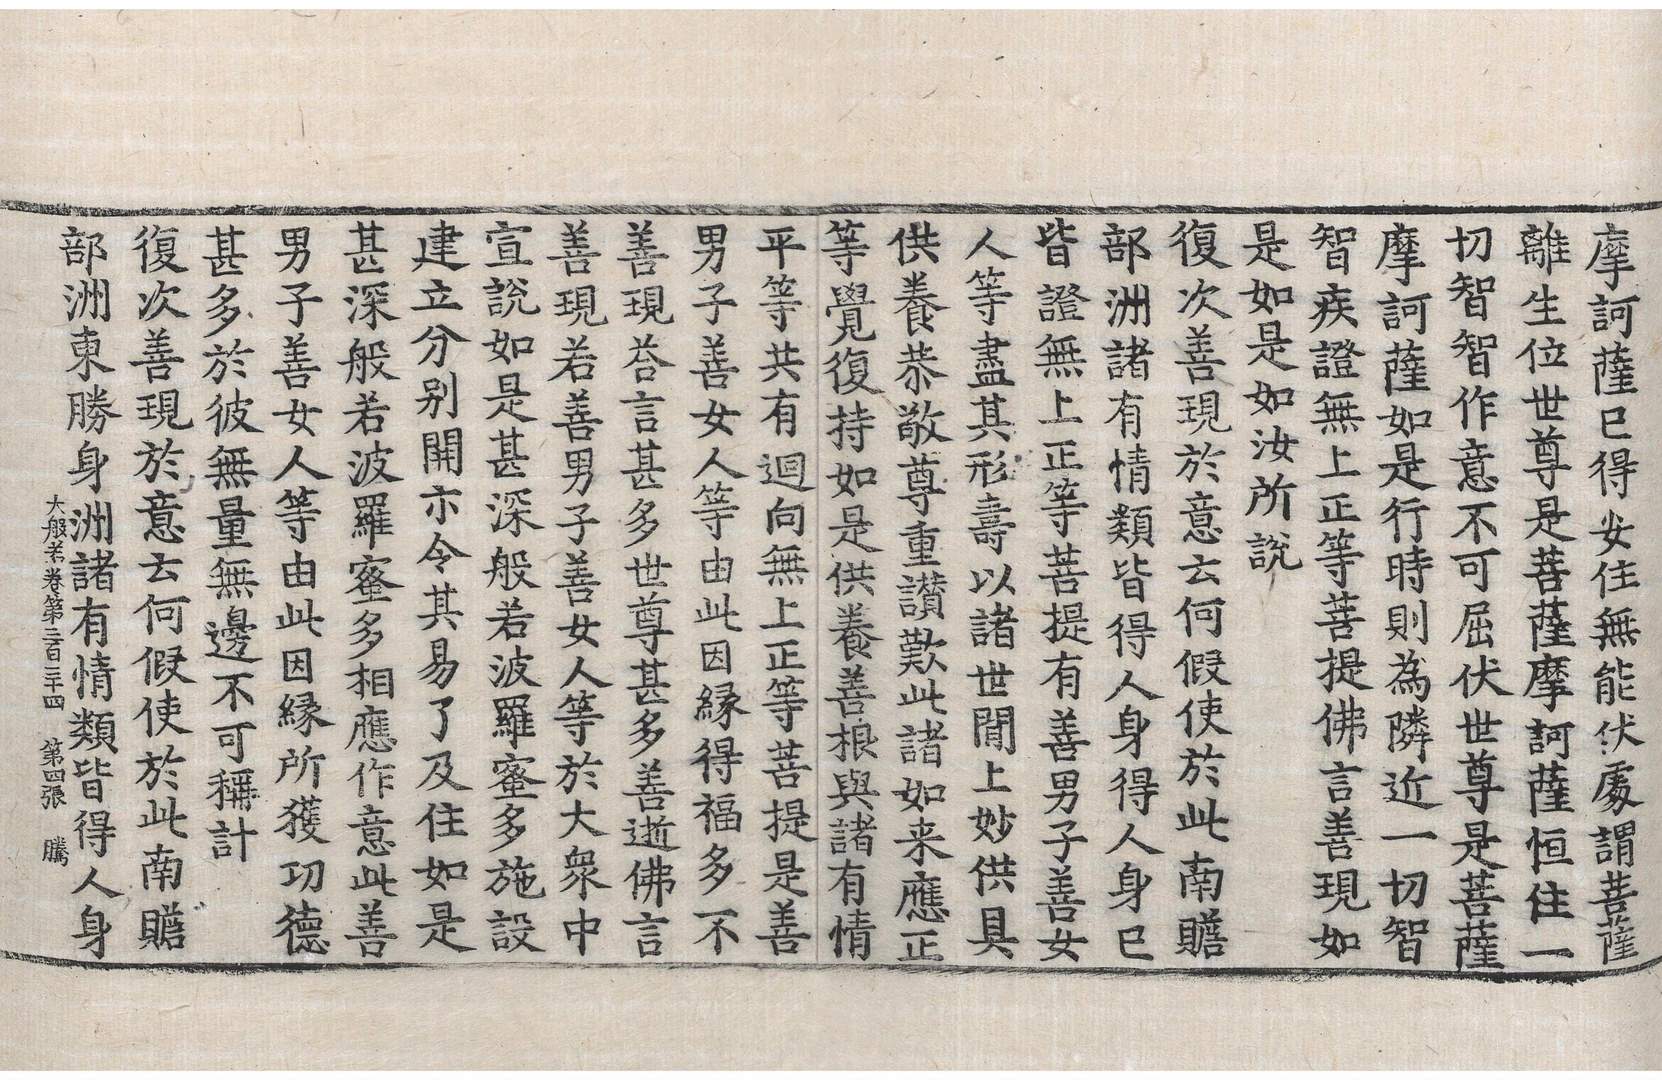 摩訶薩已得安住無能伏處謂菩薩
離生位世尊是菩薩摩訶薩恒住一
切智智作意不可屈伏世尊是菩薩
摩訶薩如是行時則為隣近一切智
智疾證無上正等菩提佛言善現如
是如是如汝所說
復次善現於意云何假使於此南贍
部洲諸有情類皆得人身得人身已
皆證無上正等菩提有善男子善女
人等盡其形壽以諸世閒上妙供具
供養恭敬尊重讃歎此諸如来應正
等覺復持如是供養善根與諸有情
平等共有迴向無上正等菩提是善
男子善女人等由此因縁得福多不
善現荅言甚多世尊甚多善逝佛言
善現若善男子善女人等於大衆中
宣說如是甚深般若波羅蜜多施設
建立分别開示令其易了及住如是
甚深般若波羅蜜多相應作意此善
男子善女人等由此因縁所獲功德
甚多於彼無量無邊不可稱計
復次善現於意云何假使於此南贍
部洲東勝身洲諸有情類皆得人身
大般若卷第三百三十四 第四張 騰